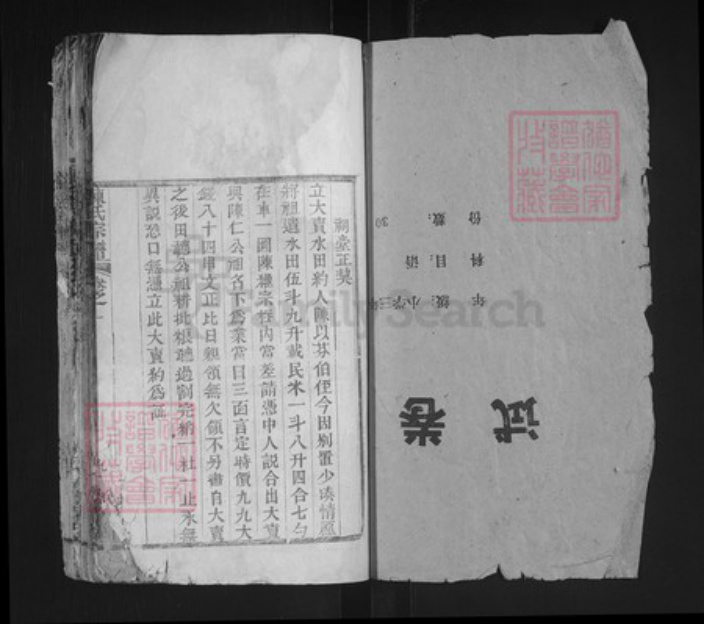 試卷
年級：小学三年
科目：语
份数：30
祠衆正契
立大賣水田約人陳以芬伯侄今因別置少湊情愿
將祖遺水田伍斗九升載民米一斗八升四合七勺
在車一圖陳 宗 內當差請憑中人說合出大賣
與陳仁公祖名下為業當日三面言定時價九九大
錢八十四串文正比日親領無欠領不另書自大賣
之後田聽公祖耕批糧聽過割完納一杜一止永無
異說恐口無憑立此大賣約為証
陳氏宗譜
卷之一
譜學會
特藏
FamilySearch